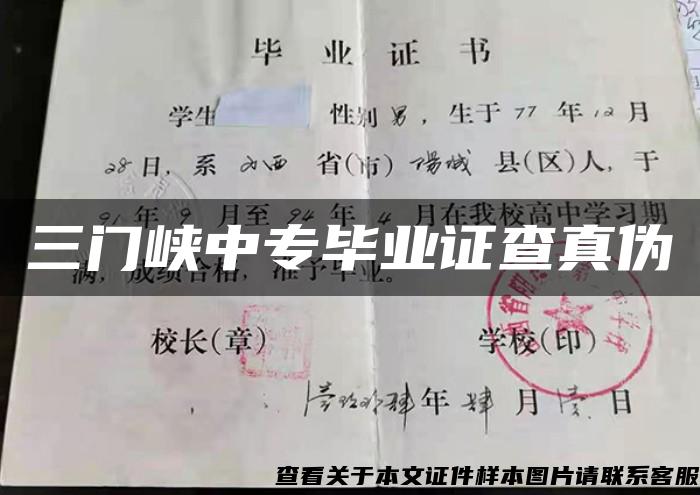 毕业证书
学生 性别男，生于77年12月
28日，系山西省(市)阳城县(区)人，于
91年9月至94年4月在我校高中学习期
三门峡中专毕业证查真伪
满，成绩合格，准予毕业。
校长(章) 学校(印)
壹玖玖肆年肆月壹日
查看关于本文证件样本图片请联系客服